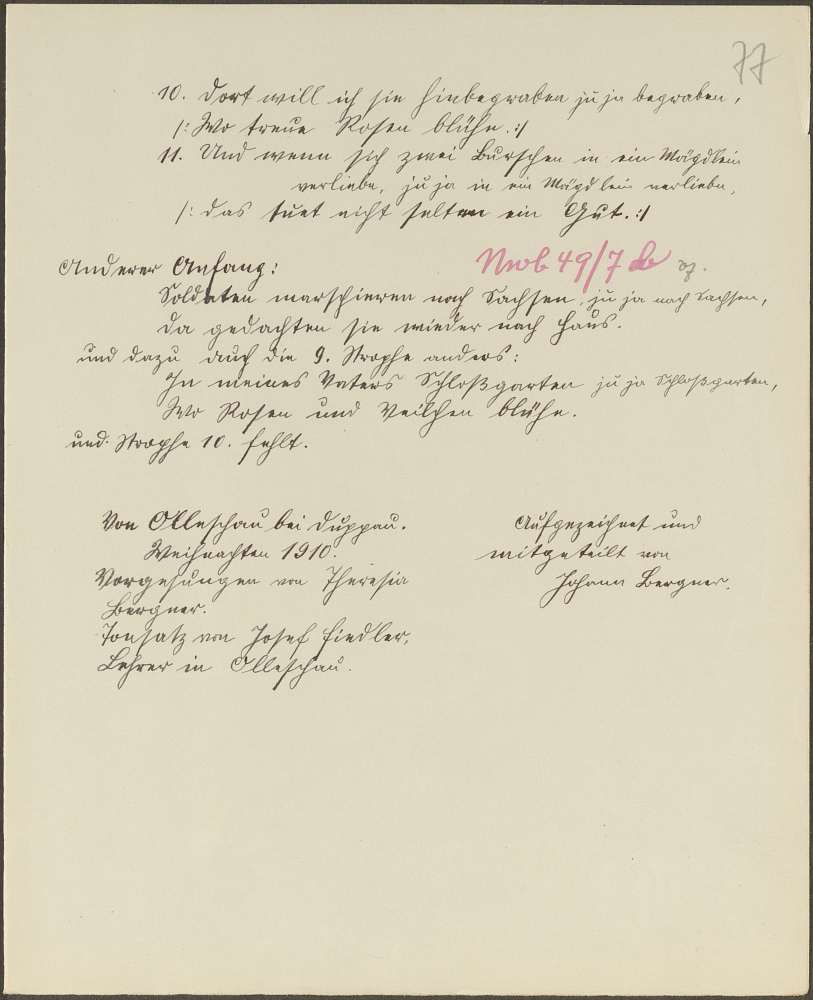 77
10. Dort will ich sie hinbegraben ju ja begraben,
/: Wo treue Rosen blühn. :/
11. Und wenn sich zwei Burschen in ein Mägdlein
verliebn, ju ja in ein Mägdlein verliebn,
/: Das tuet nicht selten ein Gut. :/
Anderer Anfang:
Nwb 49/7 b
Soldaten marschieren nach Sachsen, ju ja nach Sachsen,
Da gedachten sie wieder nach Haus.
und dazu auch die 9. Strophe anders:
In meines Vaters Schloßgarten ju ja Schloßgarten,
Wo Rosen und Veilchen blühn.
und: Strophe 10. fehlt.
Von Olleschau bei Duppau.
Weihnachten 1910.
Vorgesungen von Theresia
Bergner.
Tonsatz von Josef Fiedler,
Lehrer in Olleschau.
Aufgezeichnet und
mitgeteilt von
Johann Bergner.